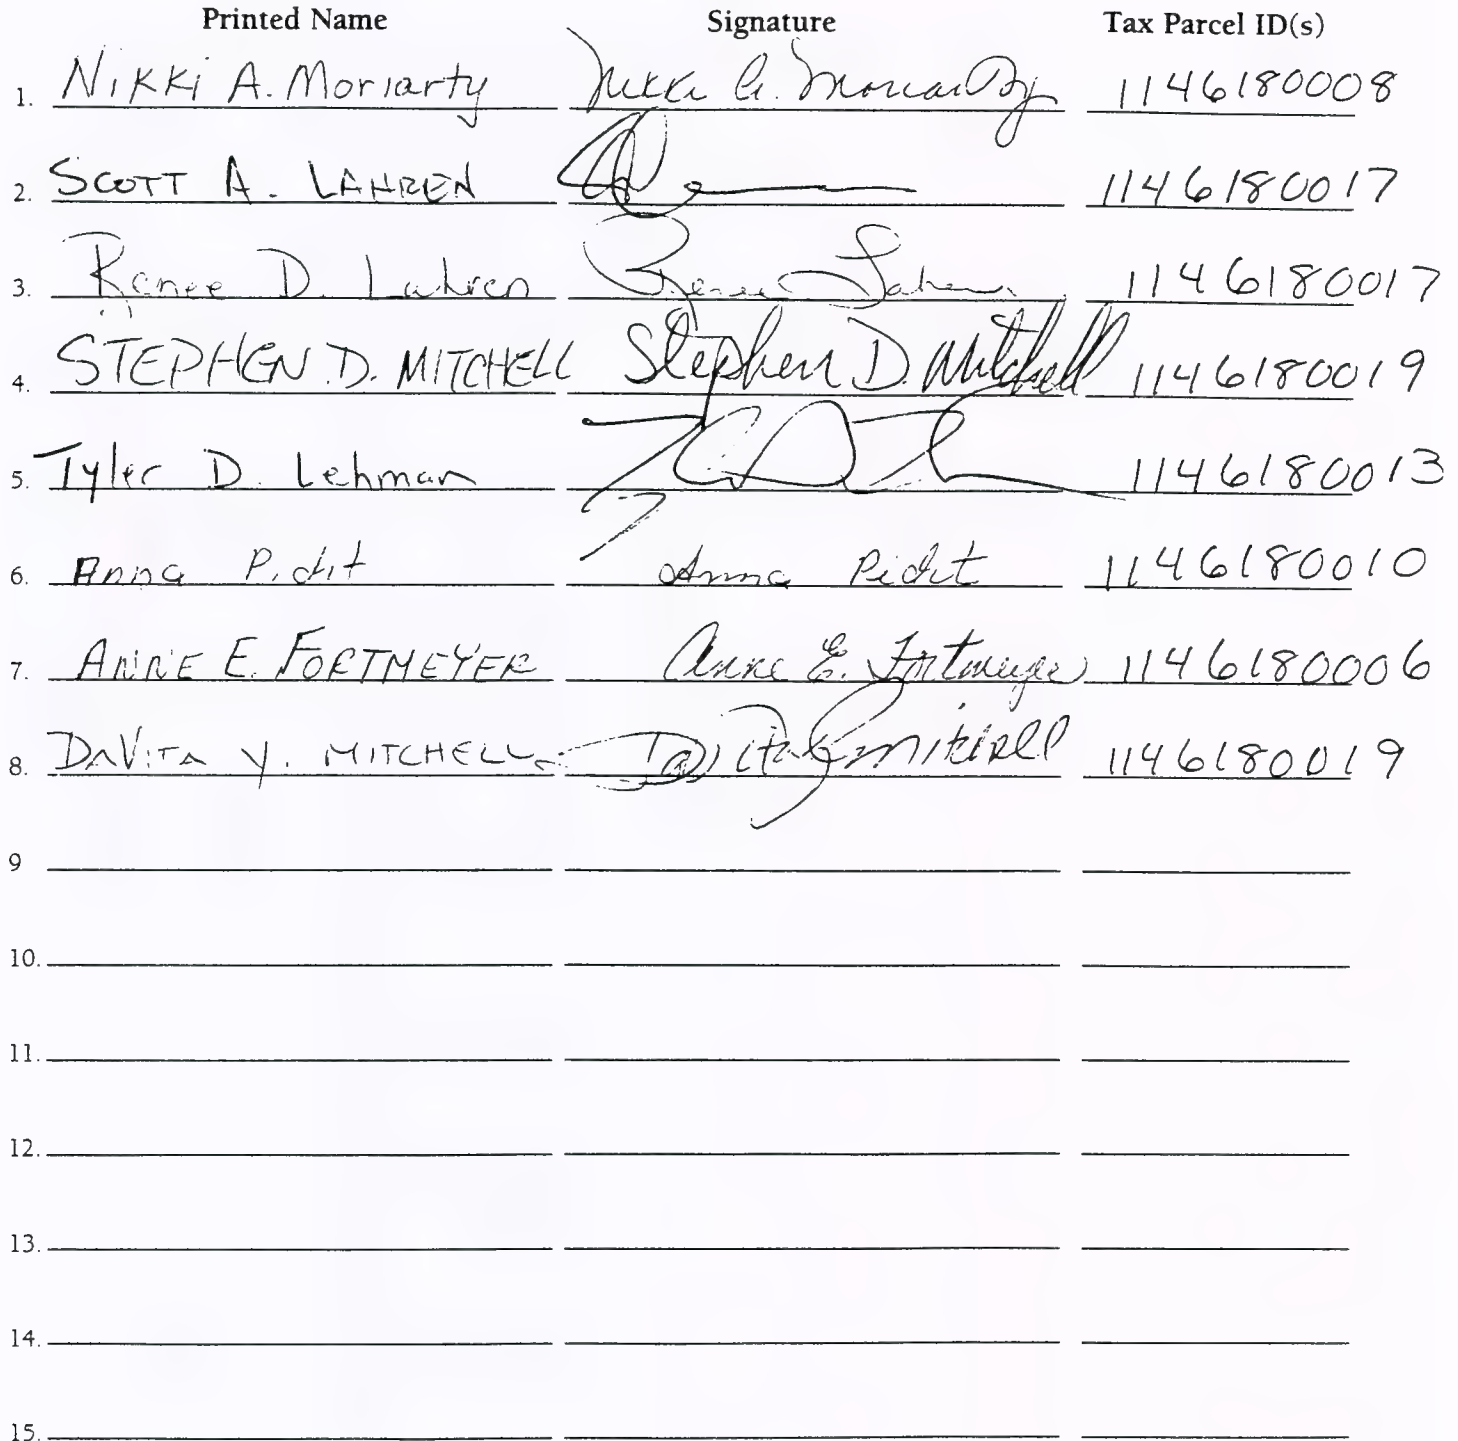 Printed Name Signature Tax Parcel ID(s)
1. Nikki A. Moriarty Nikki A. Moriarty 1146180008
2. SCOTT A. LAHREN 1146180017
3. Renee D. Lahren Renee Lahren 1146180017
4. STEPHEN D. MITCHELL Stephen D. Mitchell 1146180019
5. Tyler D. Lehman 1146180013
6. Anna Pidit Anna Pidit 1146180010
7. ANNE E. FORTMEYER Anne E. Fortmeyer 1146180006
8. DaVITA Y. MITCHELL DaVita Y Mitchell 1146180019
9
10.
11.
12.
13.
14.
15.